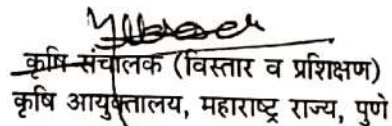 कृषि संचालक (विस्तार व प्रशिक्षण)
कृषि आयुक्तालय, महाराष्ट्र राज्य, पुणे